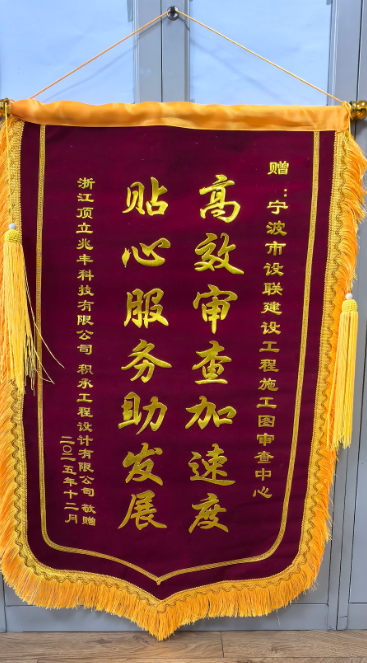 赠：宁波市设联建设工程施工图审查中心
高效审查加速度
贴心服务助发展
浙江顶立兆丰科技有限公司 积承工程设计有限公司 敬赠
二〇二五年十二月